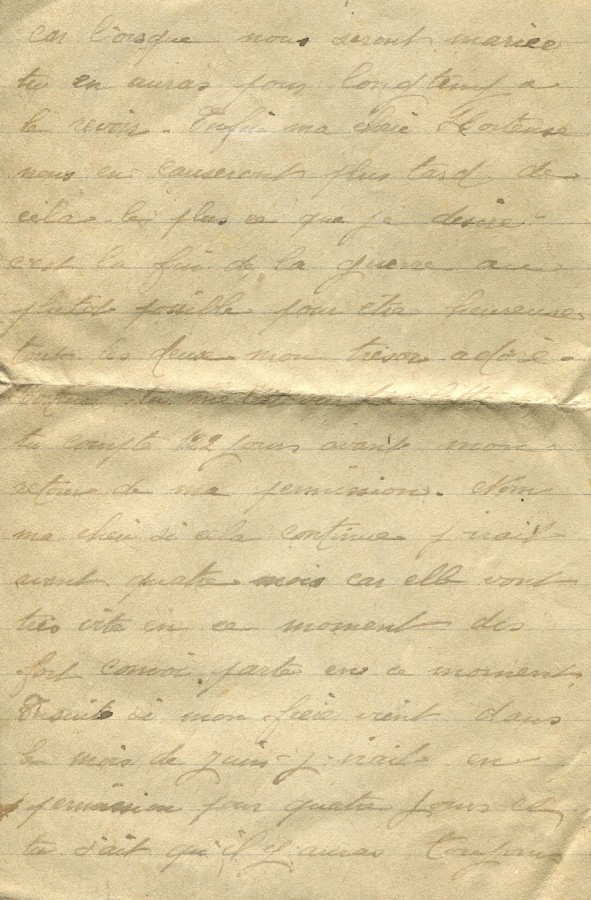 car l'orsque nous seront mariée
tu en auras pour longtemp a
le revoir. Enfin ma chéie Hortense
nous en causeront plus tard de
cela le plus ce que je desire
c'est la fin de la guerre au
plutôt possible pour etre heureuse
tous les deux mon tresor adoré.
tu compte 122 jours avant mon
retour de ma permission. Non
ma cheri si cela continue j'irait
avant quatre mois car elle vont
très vite en ce moment des
fort convoi parte en ce moment
Ensuite si mon frère vient dans
le mois de Juin j'irait en
permission pour quatre jours et
tu sait qu'il y auras toujours